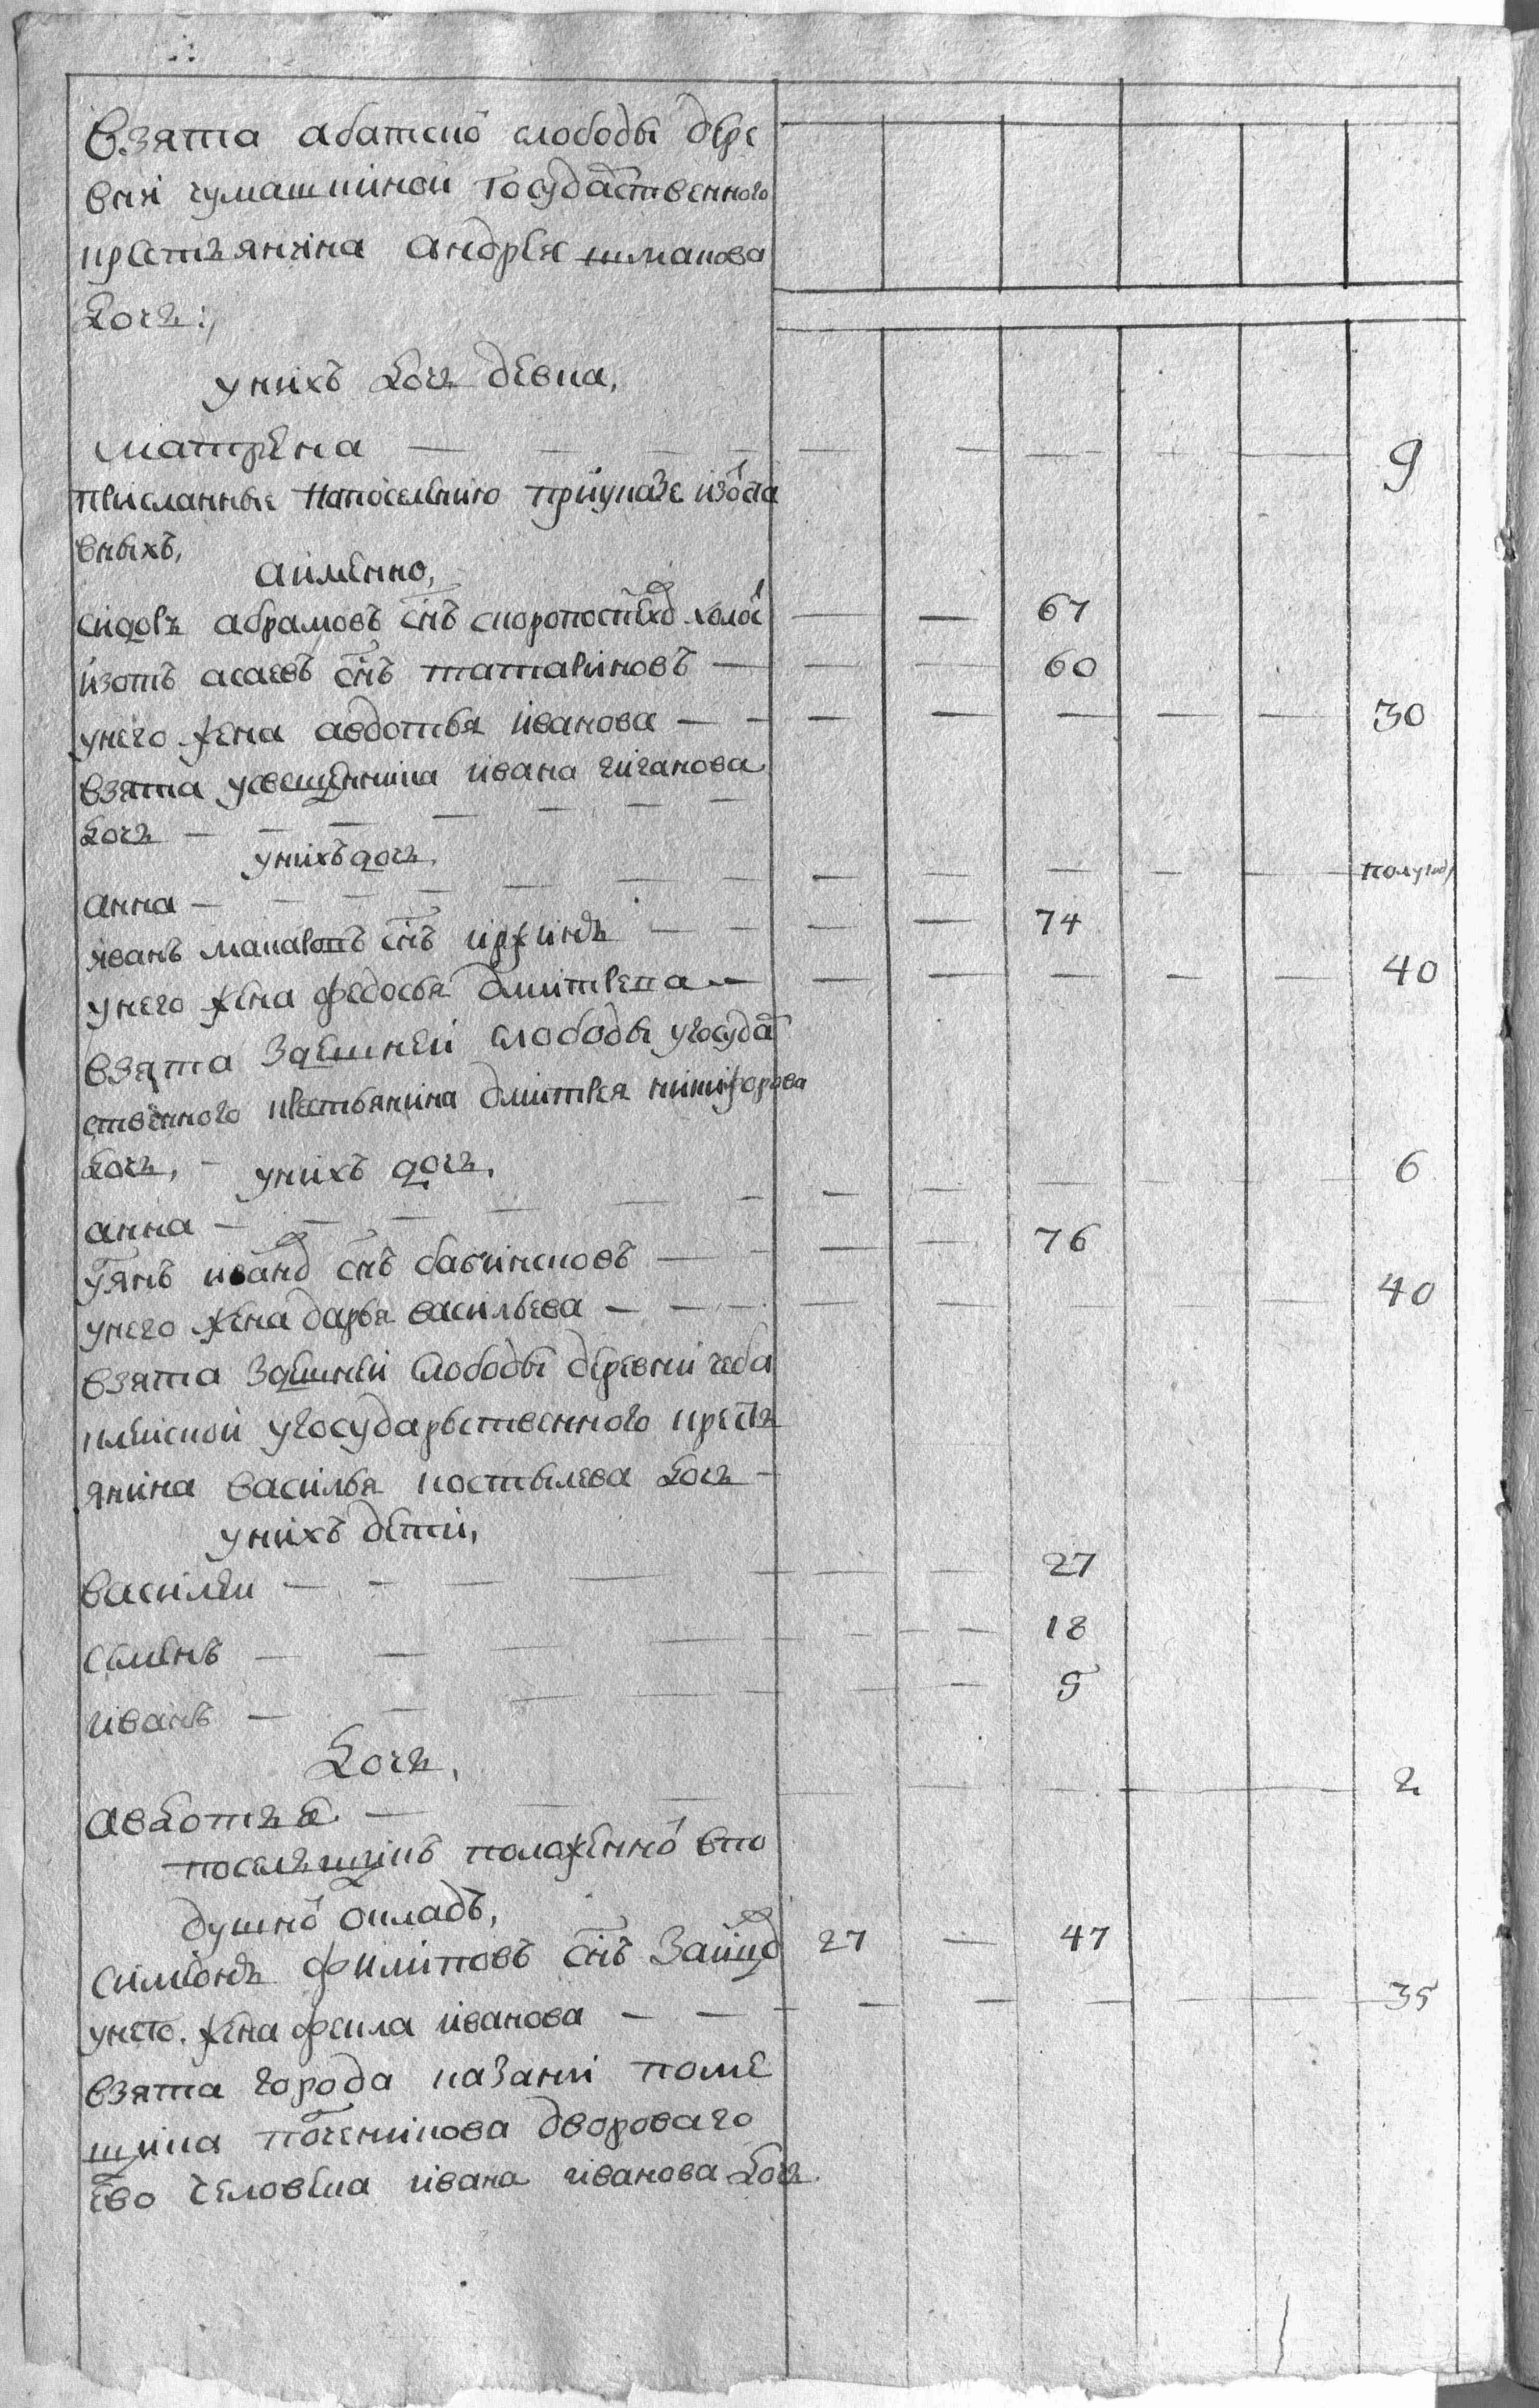 взята абатско слободы дере
вни чумашкиной государственного
крестьянина андрея шмакова
дочь:
у нихъ дочь девка,
матрена — 9
присланные на поселению при указе изоста
вныхъ,
а имѣнно,
сидоръ абрамовъ снъ скоропостиход холос — — 67
изотъ асаевъ снъ татариновъ — — — 60
у него жена авдотья иванова — — — — — — 30
взята у священника ивана чиганова
дочь — — — — — —
у нихъ дочь,
анна — — — — — полугод
иванъ макаровъ снъ — — — 74
у него жена федосья дмитрева — — — — — 40
взята здешней слободы у госуда
ственного крестьянина дмитрея никифорова
дочь, — у нихъ дочь,
анна — — — — — 6
иванов снъ бабинсковъ — — — — 76
у него жена дарья васильева — — — — — 40
взята здешней слободы деревни чеба
клеиской у государьственного кресть
янина василья костылева дочь —
у нихъ дети,
василеи — — — — 27
семенъ — — — — 18
иванъ — — — — 5
дочь,
авдотья — — — 2
поселыцикъ положенно в по
душно окладъ,
симионъ филиповъ снъ заицов 27 — 47
у него жена фекла иванова — — — — — — 35
взята города казани поме
щика дворового
ево человека ивана иванова дочь